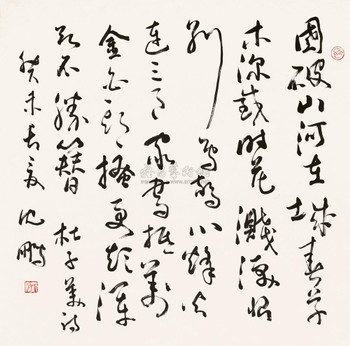 國破山河在城春草
木深感時花濺淚恨
别鳥驚心烽火
連三月家書抵萬
金白頭搔更短渾
欲不勝簪 杜子美詩
癸未長夏沈鵬